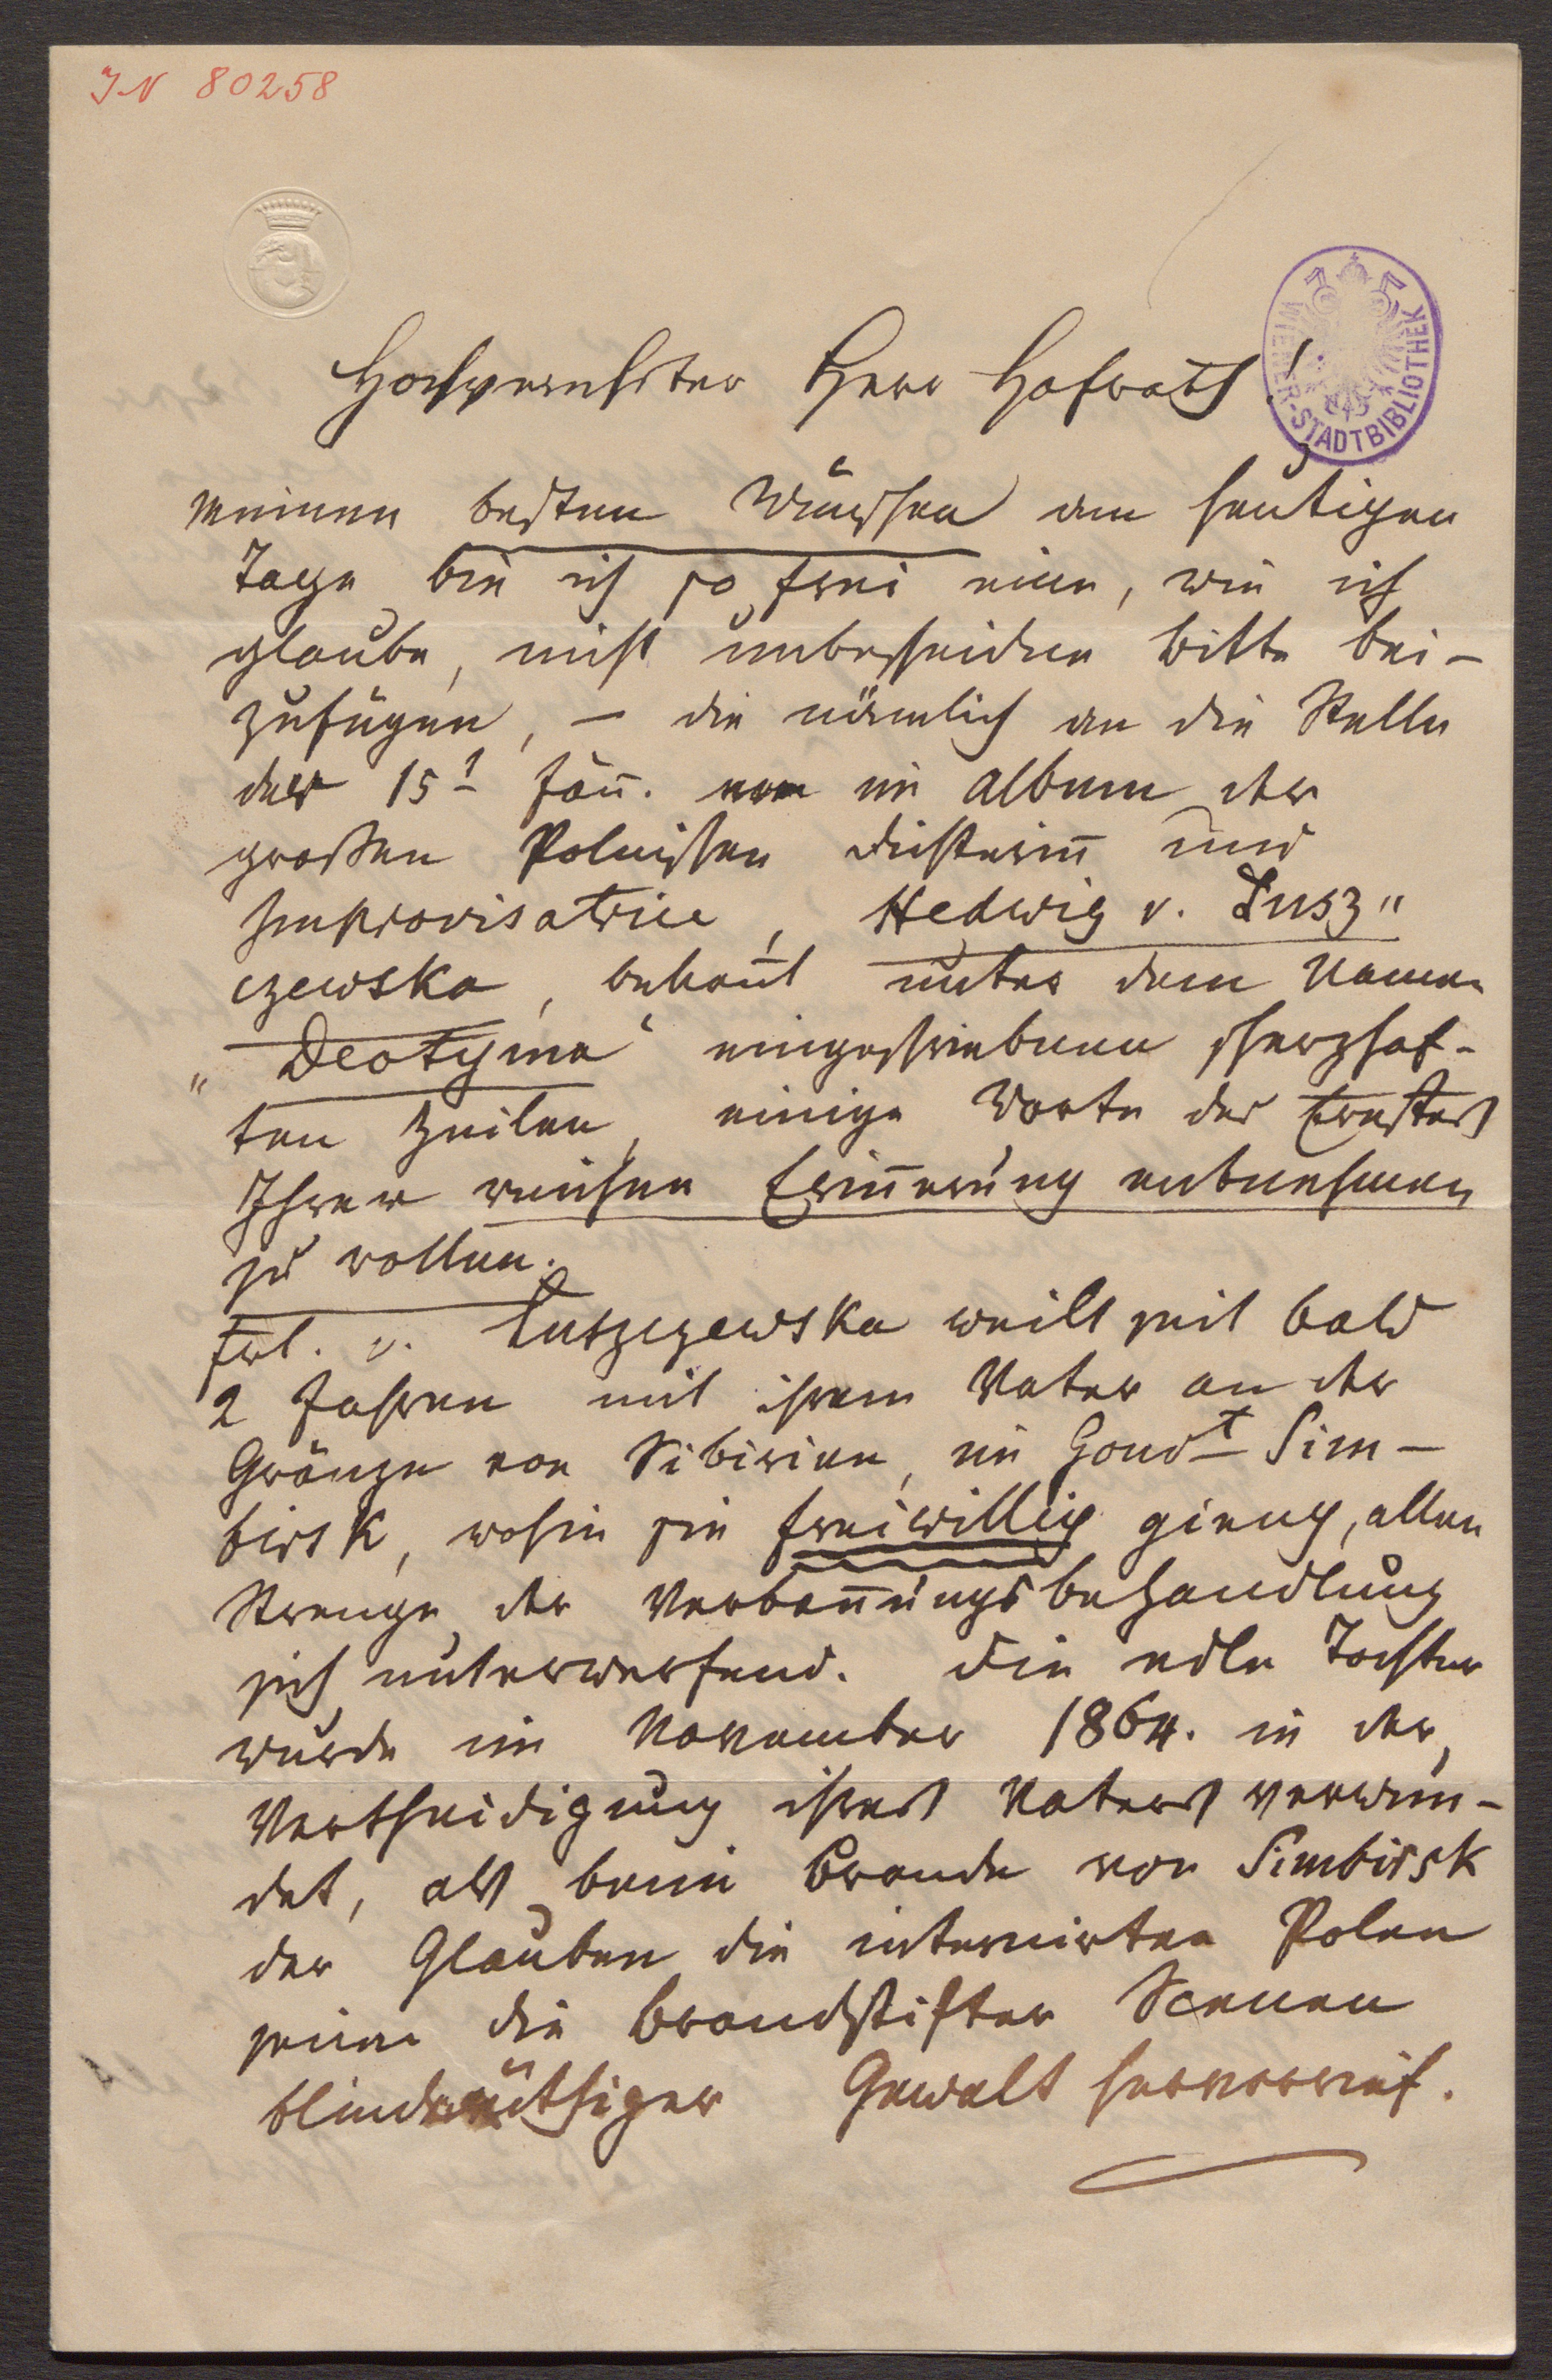 JN 80258
WIENER-STADTBIBLIOTHEK
Hochverehrter Herr Hofrath!
meinen besten Wünschen am heutigen
Tage bin ich so frei eine, wie ich
glaube, nicht unbescheidene Bitte bei-
zufügen, – die nämlich an die Stelle
der 15t Jän̄. im Album der
großen Polnischen Dichterin̄ und
Improvisatrice, Hedwig v. Lusz"
czewska, bekan̄t unter dem Namen
"Deotyma" eingeschriebenen scherzhaf-
ten Zeilen, einige Worte des Ernstes
Ihrer reichen Erin̄erung entnehmen
zu wollen.
Frl. v. Luszczewska weilt seit bald
2 Jahren mit ihrem Vater an der
Gränze von Sibirien, im Gouvt Sim-
birsk, wohin sie freiwillig gieng, allen
Strenge der Verban̄ungsbehandlung
sich unterwerfend. Die edle Tochter
wurde im November 1864. in der
Vertheidigung ihres Vaters verwun-
det, als beim Brande von Simbirsk
der Glauben die internirten Polen
seien die Brandstifter Scenen
blindwüthiger Gewalt hervorrief.